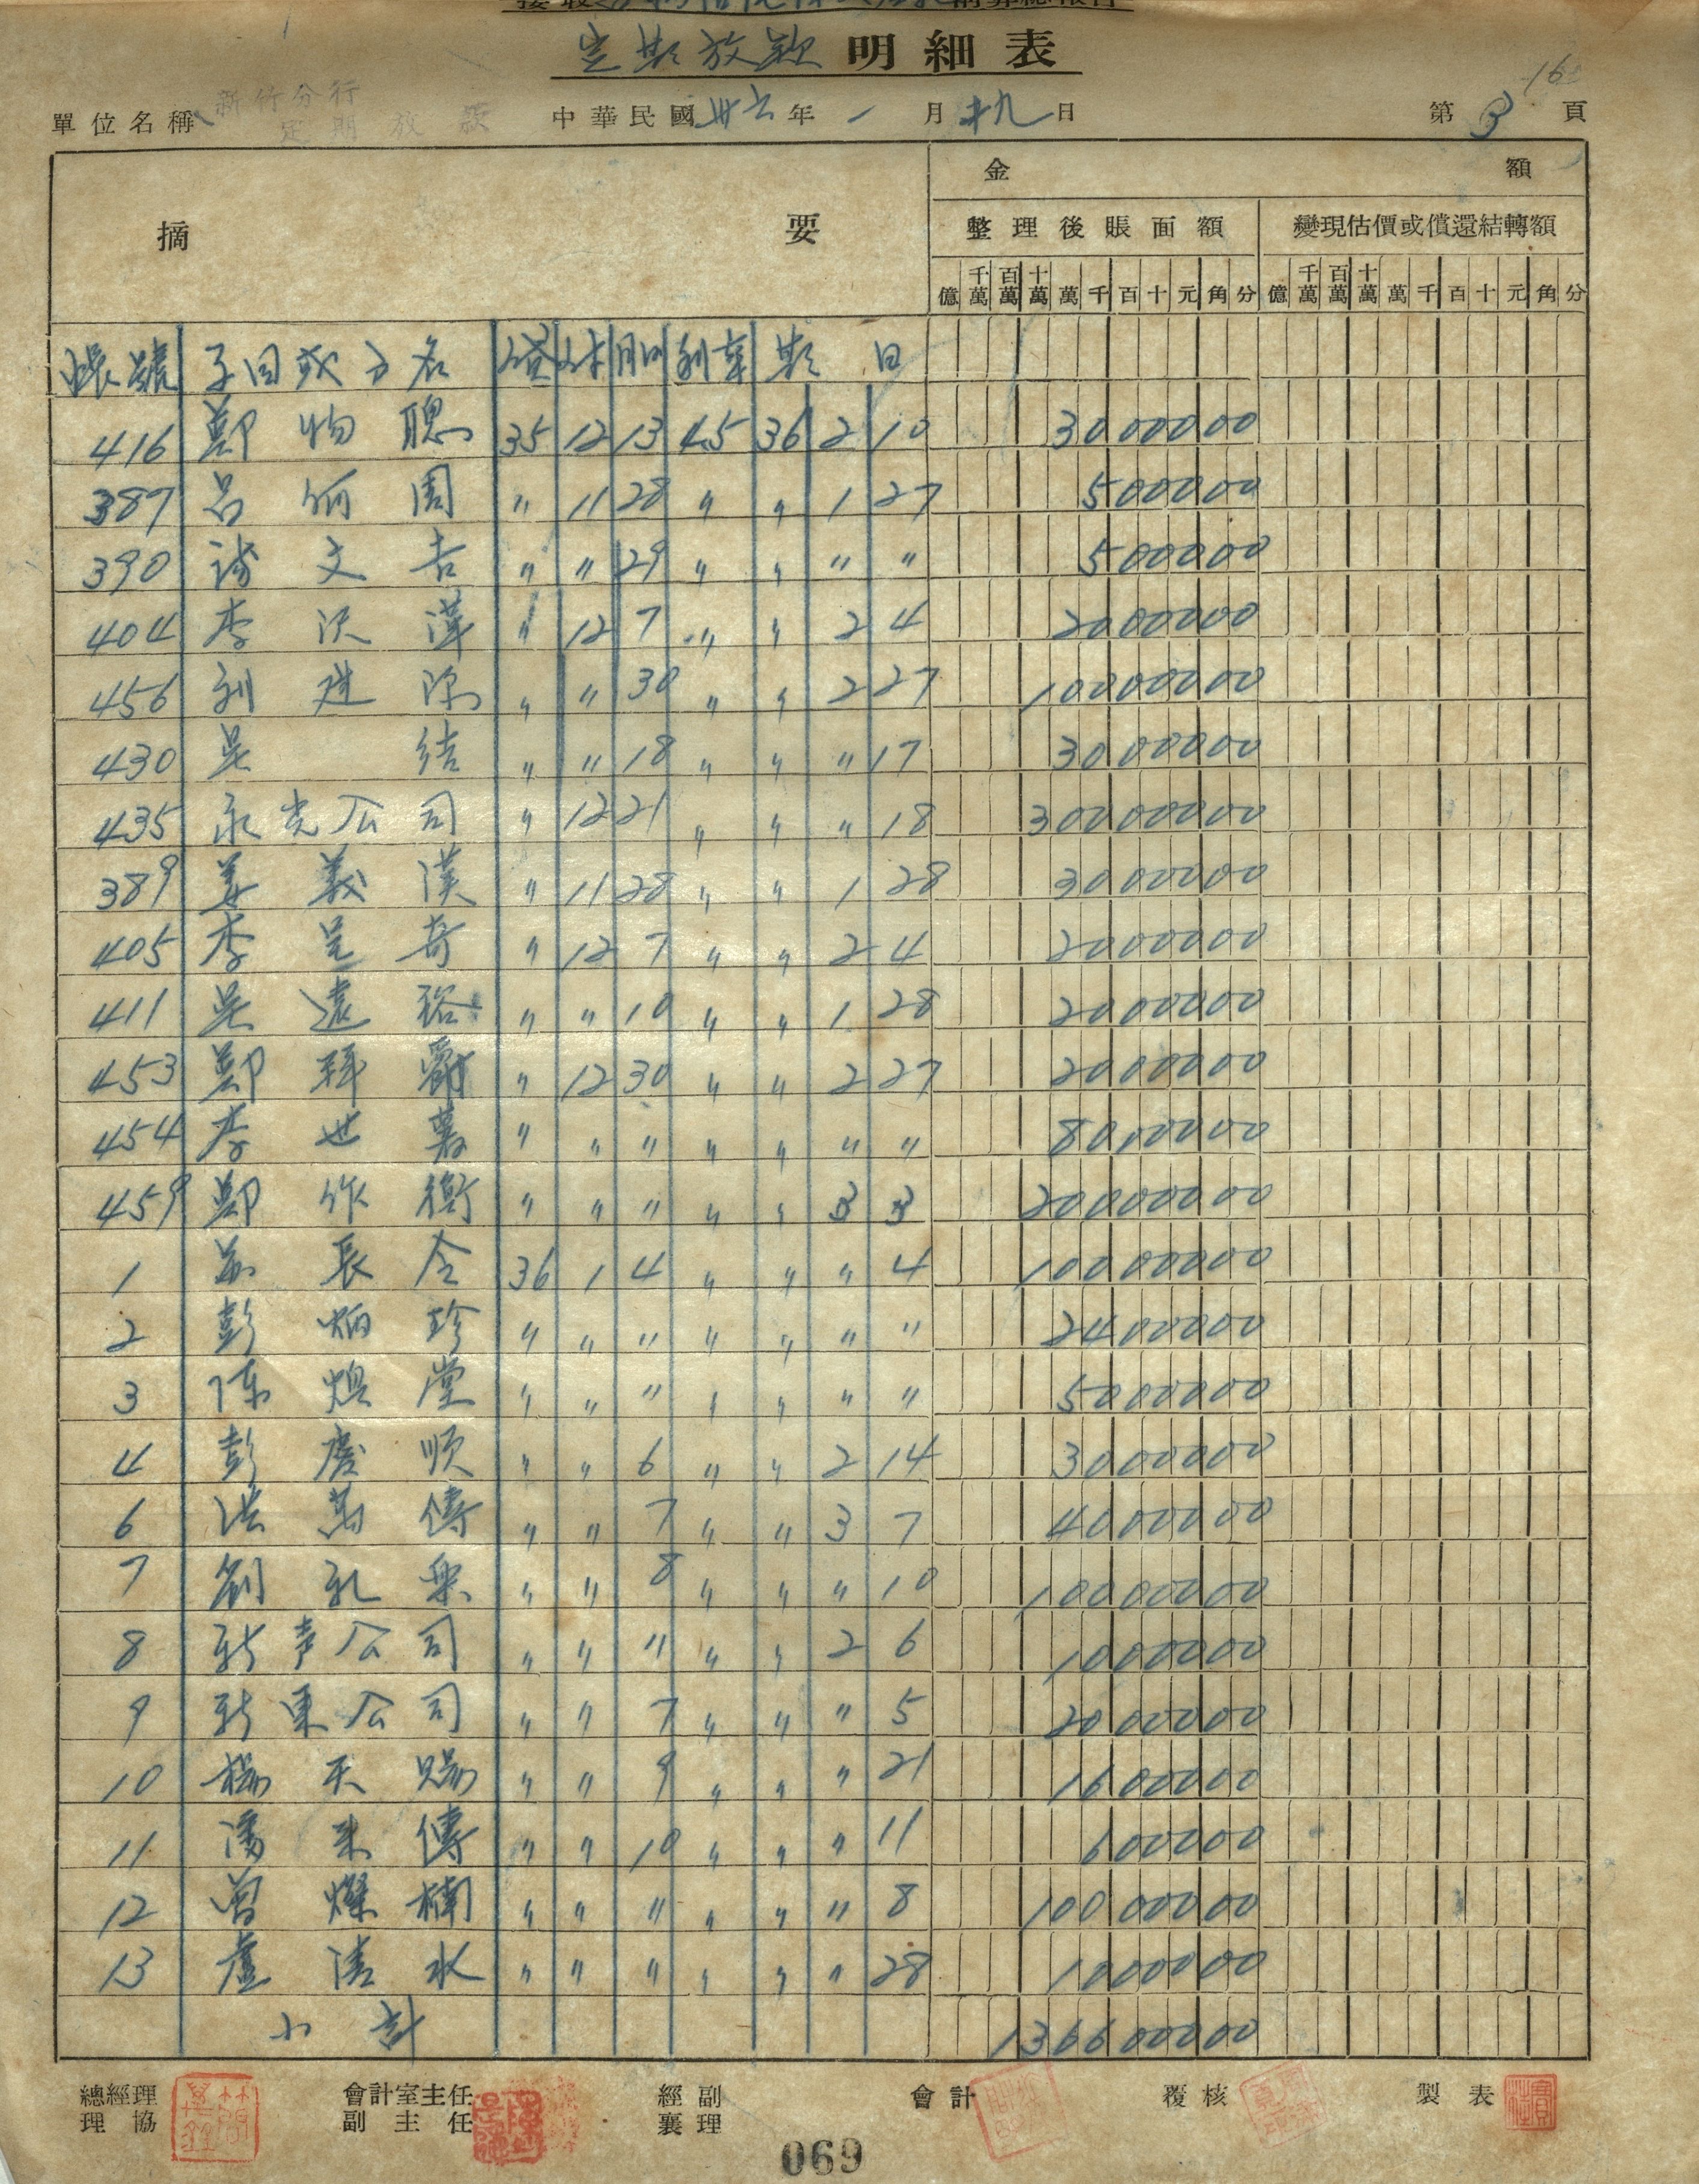 定期放款明細表
新竹分行
單位名稱 定期放款 中華民國卅六年一月十九日 第3頁
摘要 金額
整理後賬面額 變現估價或償還結轉額
億 千萬 百萬 十萬 萬 千 百 十 元 角 分 億 千萬 百萬 十萬 萬 千 百 十 元 角 分
帳號 子目或戶名 貸放期 利率 期日
416 鄭物聰 35 12 13 4.5 36 2 10 3000000
387 呂 周 〃 11 28 〃 〃 1 27 500000
390 文吉 〃 〃 29 〃 〃 〃 〃 500000
404 李沢漢 〃 12 7 〃 〃 2 4 2000000
456 建 〃 〃 30 〃 〃 2 27 10000000
430 吴結 〃 〃 18 〃 〃 〃 17 3000000
435 永光公司 〃 12 21 〃 〃 〃 18 30000000
389 姜義漢 〃 11 28 〃 〃 1 28 3000000
405 李呈奇 〃 12 7 〃 〃 2 4 2000000
411 吴遠裕 〃 〃 10 〃 〃 1 28 2000000
453 鄭拜爵 〃 12 30 〃 〃 2 27 2000000
454 李世 〃 〃 〃 〃 〃 〃 〃 8000000
459 鄭作衡 〃 〃 〃 〃 〃 3 3 20000000
1 長全 36 1 4 〃 〃 〃 4 10000000
2 彭炳珍 〃 〃 〃 〃 〃 〃 〃 2400000
3 陳堂 〃 〃 〃 〃 〃 〃 〃 5000000
4 彭慶順 〃 〃 6 〃 〃 2 14 3000000
6 洪萬傳 〃 〃 7 〃 〃 3 7 4000000
7 劉乳 〃 〃 8 〃 〃 〃 10 10000000
8 新声公司 〃 〃 〃 〃 〃 2 6 1000000
9 新東公司 〃 〃 7 〃 〃 〃 5 2000000
10 楊天賜 〃 〃 9 〃 〃 〃 21 1600000
11 潘来傳 〃 〃 10 〃 〃 〃 11 600000
12 曾燦楠 〃 〃 〃 〃 〃 〃 8 10000000
13 盧清水 〃 〃 〃 〃 〃 〃 28 1000000
小計 136600000
總經理 會計室主任 經副 會計 覆核 製表
理協 副主任 襄理
069